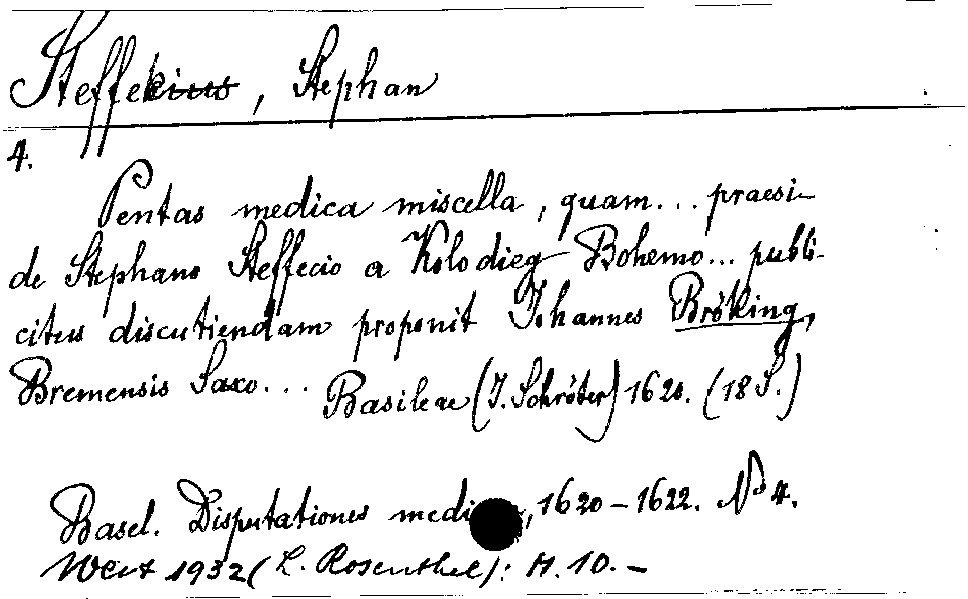 Steffekius, Stephan
4.
Pentas medica miscella, quam... praesi-
de Stephano Steffecio a Kolodieg Bohemo... publi-
citus discutiendam proponit Johannes Bröking,
Bremensis Saxo...
Basileae (J. Schröter) 1620. (18 S.)
Basel. Disputationes medi , 1620-1622. No 4.
Wert 1932 (L. Rosenthal): M. 10.-